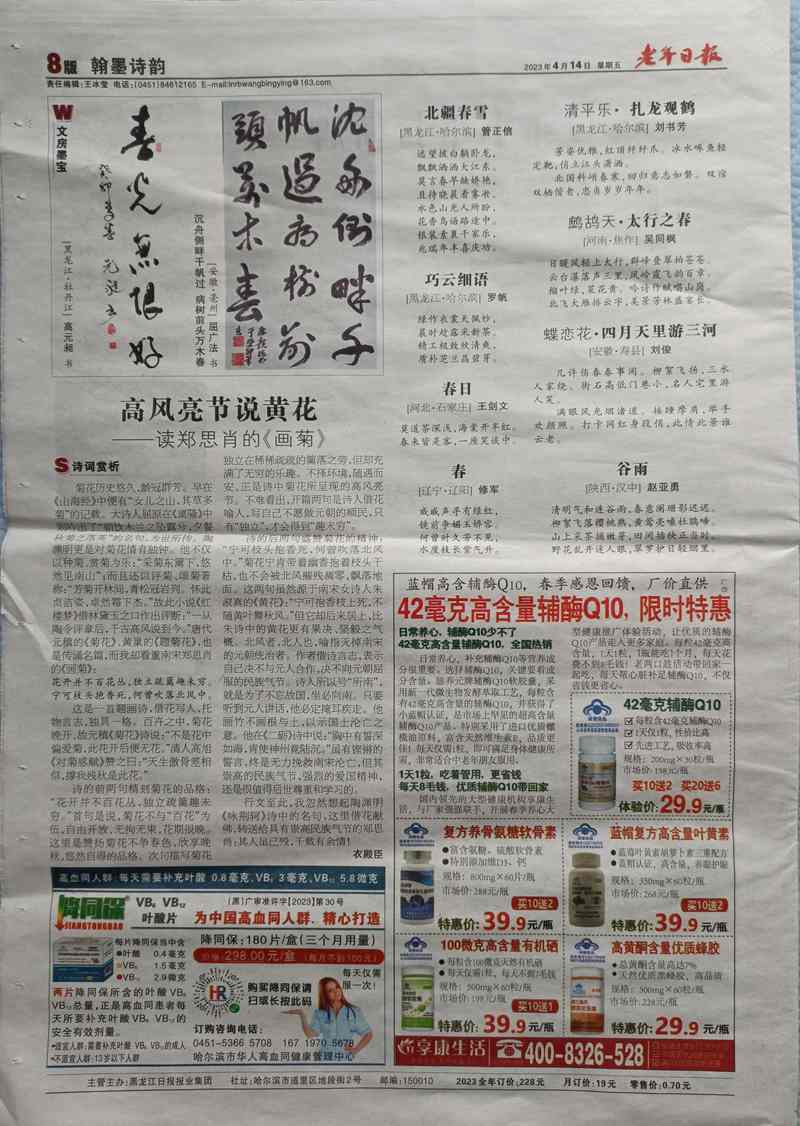 8版 翰墨诗韵
2023年4月14日 星期五
老年日报
责任编辑:王冰莹 电话:(0451)84612165 E-mail:lnrbwangbingying@163.com
W
文房墨宝
春光无限好
[黑龙江·牡丹江]高元昶 书
沉舟侧畔千帆过 病树前头万木春
[安徽·亳州]屈广法 书
高风亮节说黄花
——读郑思肖的《画菊》
S 诗词赏析
菊花历史悠久,龄冠群芳。早在
《山海经》中便有“女儿之山,其草多
菊”的记载。大诗人屈原在《离骚》中
渊明更是对菊花情有独钟。他不仅
以种菊、赏菊为乐:“采菊东篱下,悠
然见南山”;而且还以抒菊、颂菊著
称:“芳菊开林间,青松冠岩列。怀此
贞洁姿,卓然霜下杰。”故此小说《红
楼梦》借林黛玉之口作出评断:“一从
陶令评章后,千古高风说到今。”唐代
元稹的《菊花》、黄巢的《题菊花》,也
是传诵名篇,而我却看重南宋郑思肖
的《画菊》:
花开并不百花丛,独立疏篱趣未穷。
宁可枝头抱香死,何曾吹落北风中。
这是一首题画诗,借花写人,托
物言志,独具一格。百卉之中,菊花
晚开,故元稹《菊花》诗说:“不是花中
偏爱菊,此花开后便无花。”清人高旭
《对菊感赋》赞之曰:“天生傲骨差相
似,撑我残秋是此花。”
诗的前两句精刻菊花的品格:
“花开并不百花丛,独立疏篱趣未
穷。”首句是说,菊花不与“百花”为
伍,自由开放,无拘无束,花期很晚。
这里是赞扬菊花不争春色,欣享晚
秋,悠然自得的品格。次句描写菊花
独立在稀稀疏疏的篱落之旁,但却充
满了无穷的乐趣。不择环境,随遇而
安,正是诗中菊花所呈现的高风亮
节。不难看出,开篇两句是诗人借花
喻人,写自己不愿做元朝的顺民,只
有“独立”,才会得到“趣未穷”。
诗的后两句盛赞菊花的精神:
“宁可枝头抱香死,何曾吹落北风
中。”菊花宁肯带着幽香抱着枝头干
枯,也不会被北风摧残凋零,飘落地
面。这两句虽然源于南宋女诗人朱
淑真的《黄花》:“宁可抱香枝上死,不
随黄叶舞秋风。”但它却后来居上,比
朱诗中的黄花更有果决、坚毅之气
概。北风者,北人也,喻指灭掉南宋
的元朝统治者。作者借诗言志,表示
自己决不与元人合作,决不向元朝屈
服的民族气节。诗人所以号“所南”,
就是为了不忘故国,坐必向南。只要
听到元人讲话,他必定掩耳疾走。他
画竹不画根与土,以示国土沦亡之
意。他在《二砺》诗中说:“胸中有誓深
如海,肯使神州竟陆沉。”虽有铿锵的
誓言,终是无力挽救南宋沦亡,但其
崇高的民族气节,强烈的爱国精神,
还是很值得后世尊重和学习的。
行文至此,我忽然想起陶渊明
《咏荆轲》诗中的名句,这里借花献
佛,转送给具有崇高民族气节的郑思
肖:其人虽已殁,千载有余情!
衣殿臣
北疆春雪
[黑龙江·哈尔滨] 管正信
远望披白鹅卧龙,
飘飘洒洒大江东。
莫言春早缺娇艳,
且待晓晨看雾凇。
水色山光人所盼,
花香鸟语路途中。
银装素裹千家乐,
光瑞年丰喜庆功。
巧云细语
[黑龙江·哈尔滨] 罗帆
绿作衣裳天佩纱,
晨时趁露采新茶。
精工极致炊清爽,
质朴芝兰品碧芽。
春日
[河北·石家庄] 王剑文
莫道茶深浅,海棠开半红。
春来皆是客,一座笑谈中。
春
[辽宁·辽阳] 修军
成威声寻有绿红,
镜前争媚玉娇容。
何曾叶久芳不见,
水度枝长紫气升。
清平乐·扎龙观鹤
[黑龙江·哈尔滨] 刘书芳
芳姿优雅,红顶纤纤爪。冰水啄鱼轻
定靶,仿立江头潇洒。
北国料峭春寒,回归意志如磐。双宿
双栖偕老,忠贞岁岁年年。
鹧鸪天·太行之春
[河南·焦作] 吴同枫
日暖风轻上太行,群峰叠翠柏苍苍。
云台瀑落声三里,凤岭霞飞韵百章。
榴叶绿,菜花黄。吟诗作赋唱山岗。
北飞大雁排云字,美景芳林益寿长。
蝶恋花·四月天里游三河
[安徽·寿县] 刘俊
几许伤春春事闲。柳絮飞扬,三水
人家绕。街石高低门巷小,名人宅里游
人笑。
满眼风光烟渚道。接踵摩肩,举手
欢颜照。打卡网红身段俏,此情此景谁
云老。
谷雨
[陕西·汉中] 赵亚勇
清明气和连谷雨,春意阑珊影迟迟。
柳絮飞落樱桃熟,黄莺恋嗓杜鹃啼。
山上采茶摘嫩芽,田间插秧正当时。
野花乱开迷人眼,翠萝护日轻烟里。
蓝帽高含辅酶Q10，春季感恩回馈，厂价直供
广告
42毫克高含量辅酶Q10，限时特惠
日常养心、辅酶Q10少不了
42毫克高含量辅酶Q10，全国热销
日常养心，补充辅酶Q10等营养成
分很重要。选择辅酶Q10，关键要看成
分含量。臻养元牌辅酶Q10软胶囊，采
用新一代微生物发酵萃取工艺，每粒含
有42毫克高含量的辅酶Q10，并获得了
小蓝帽认证，是市场上罕见的超高含量
辅酶Q10产品。特别采用了进口优质橄
榄油原料，富含天然维生素E，品质更
佳！每天仅需1粒，即可满足身体健康所
需，非常适合中老年朋友服用。
1天1粒，吃着管用，更省钱
每天8毛钱，优质辅酶Q10带回家
国内领先的大型健康机构享康生
活，与厂家强强联手，开展春季养心大
型健康推广体验活动，让优质的辅酶
Q10产品走入更多家庭。每粒42毫克高
含量，1天1粒，1瓶能吃1个月，每天花
费不到8毛钱！老两口趁活动带回家一
起吃，每天帮心脏补足辅酶Q10，不仅
省钱更省心。
42毫克辅酶Q10
每粒含42毫克辅酶Q10
1天仅1粒，性价比高
先进工艺，吸收率高
规格：200mg×30粒/瓶
市场价：198元/瓶
买10送2 买20送6
体验价：29.9元/瓶
复方养骨氨糖软骨素
富含氨糖、硫酸软骨素
特别添加维D3、钙
规格：800mg×60片/瓶
市场价：288元/瓶
买10送2
特惠价：39.9元/瓶
蓝帽复方高含量叶黄素
蓝莓叶黄素胡萝卜素三重配方
蓝帽认证，高含量，养眼护眼
规格：350mg×60粒/瓶
市场价：268元/瓶
买10送2
特惠价：39.9元/瓶
100微克高含量有机硒
每粒含100微克天然有机硒
每天仅需1粒，每天不到7毛钱
规格：500mg×60粒/瓶
市场价：199元/瓶
买10送1
特惠价：39.9元/瓶
高黄酮含量优质蜂胶
总黄酮含量高达7%
天然优质黑蜂蜂胶，高品质
规格：500mg×60粒/瓶
市场价：228元/瓶
特惠价：29.9元/瓶
享康生活
400-8326-528
高血同人群: 每天需要补充叶酸 0.8毫克、VB₆ 3毫克、VB₁₂ 5.8微克
降同保
JIANGTONGBAO
VB₆ VB₁₂
叶酸片
(黑)广审准许字[2023]第30号
为中国高血同人群，精心打造
每片降同保当中含
叶酸 0.4毫克
VB₆ 1.5毫克
VB₁₂ 2.9微克
降同保：180片/盒(三个月用量)
价格：298.00元/盒 (每月不到100元)
购买降同保请
扫或长按此码
每天仅需
服一次!
两片降同保所含的叶酸 VB₆
VB₁₂总量，正是高血同患者每
天所要补充叶酸 VB₆ VB₁₂的
安全有效剂量。
适宜人群:需要补充叶酸 VB₆、VB₁₂的成人
不适宜人群:13岁以下人群
订购咨询电话：
0451-5366 5708 167 1970 5678
哈尔滨市华人高血同健康管理中心
主管主办:黑龙江日报报业集团 社址:哈尔滨市道里区地段街2号 邮编:150010 2023全年订价:228元 月订价:19元 零售价:0.70元